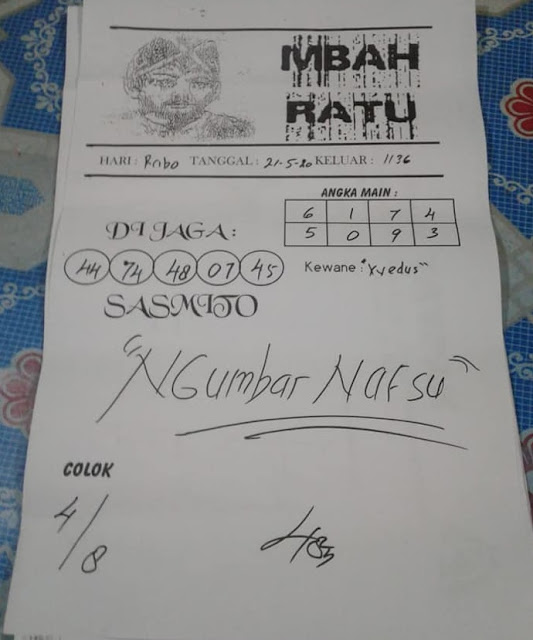 MBAH
RATU
HARI : Rabo TANGGAL : 21-5-20 KELUAR : 1136
ANGKA MAIN :
6 1 7 4
5 0 9 3
DI JAGA :
44 74 48 07 45
Kewane : "Wedus"
SASMITO
"NGumbar Nafsu"
COLOK
4/8